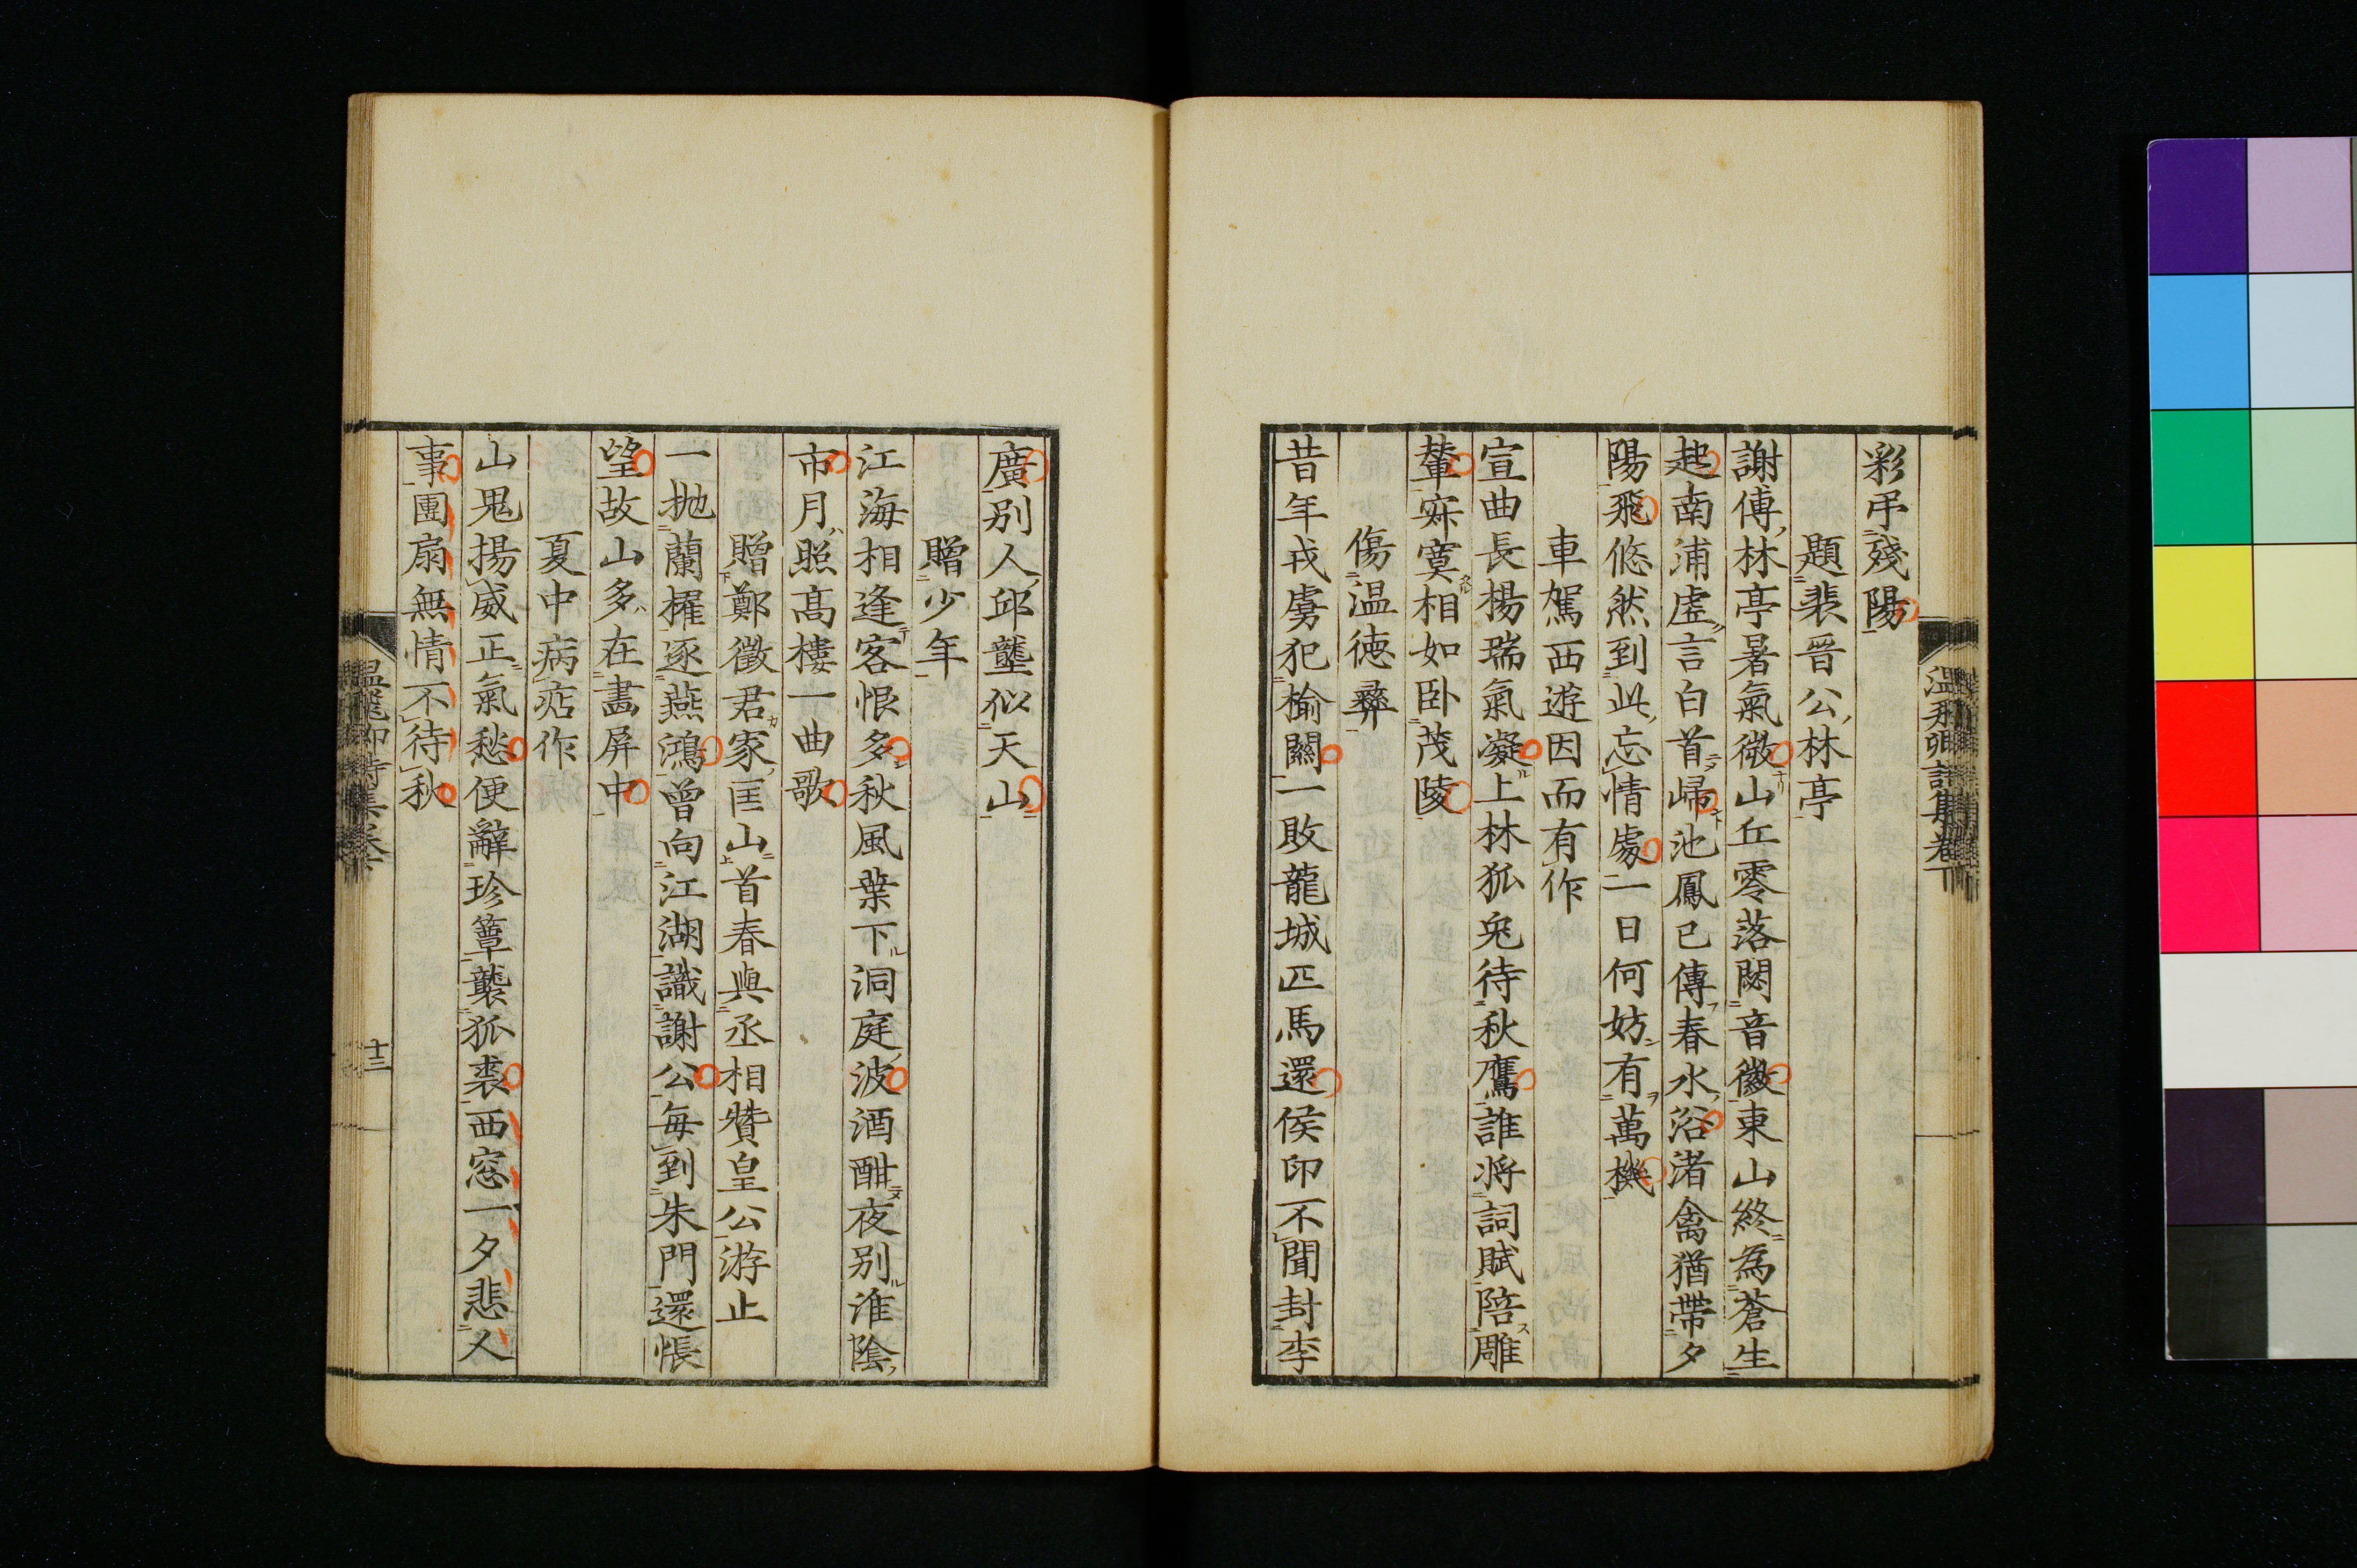 温飛卿詩集卷下
彩帋殘陽
題裴晋公林亭
謝傅林亭暑氣微山丘零落閟音徽東山終為蒼生
起南浦虛言白首歸池鳳已傳春水浴渚禽猶帶夕
陽飛悠然到此忘情處一日何妨有萬機
車駕西遊因而有作
宣曲長楊瑞氣凝上林狐兔待秋鷹誰将詞賦陪雕
輦寂寞相如卧茂陵
傷温德彝
昔年戎虜犯榆關一敗龍城匹馬還侯印不聞封李
廣别人邱壟似天山
贈少年
江海相逢客恨多秋風葉下洞庭波酒酣夜别淮陰
市月照高樓一曲歌
贈鄭徵君家匡山首春與丞相贊皇公游止
一抛蘭櫂逐燕鴻曾向江湖識謝公每到朱門還悵
望故山多在畫屏中
夏中病痁作
山鬼揚威正氣愁便辭珍簟襲狐裘西窓一夕悲人
事團扇無情不待秋
温飛卿詩集卷下
十三